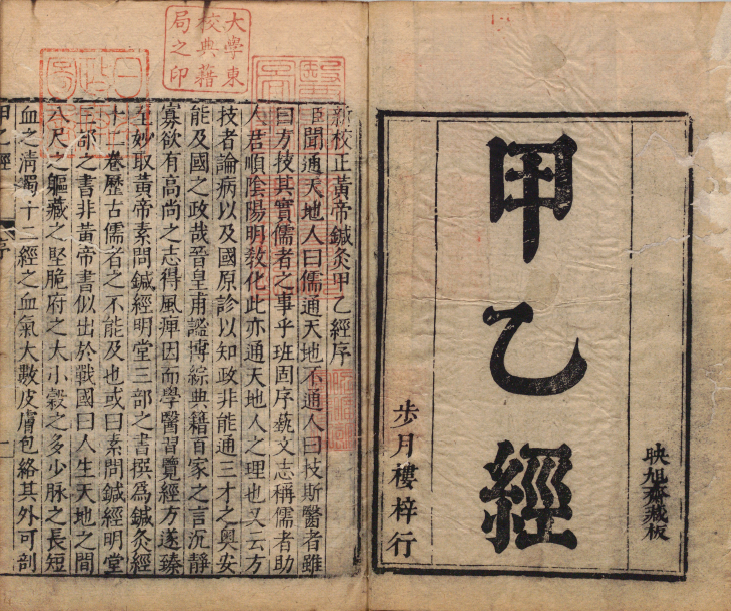 映旭齋藏板
甲乙經
歩月樓梓行
大學東
校典籍
局之印
新校正黃帝鍼灸甲乙經序
臣聞通天地人曰儒通天地不通人曰技斯醫者雖
曰方技其實儒者之事乎班固序藝文志稱儒者助
人君順陰陽明教化此亦通天地人之理也又云方
技者論病以及國原診以知政非能通三才之奧安
能及國之政哉晉皇甫謐博綜典籍百家之言沉靜
寡欲有高尚之志得風痺因而學醫習覽經方遂臻
至妙取黃帝素問鍼經明堂三部之書撰爲鍼灸經
十二卷歷古儒者之不能及也或曰素問鍼經明堂
三部之書非黃帝書似出於戰國曰人生天地之間
八尺之軀藏之堅脆府之大小穀之多少脉之長短
血之清濁十二經之血氣大數皮膚包絡其外可剖
甲乙經 序 一